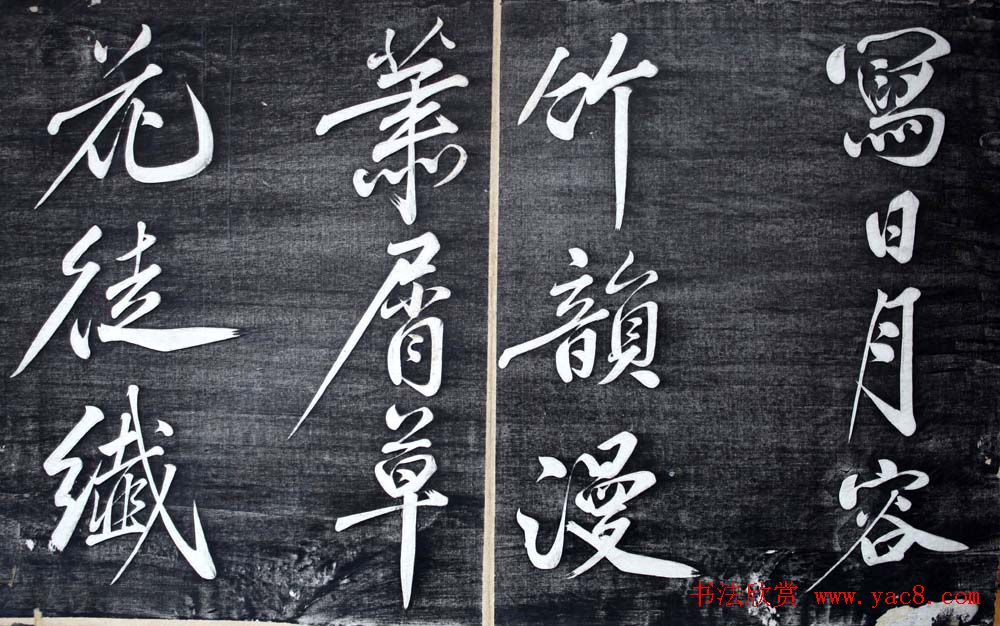 寫日月容
竹韻漫
萧屑草
花徒纖
书法欣赏 www.yac8.com